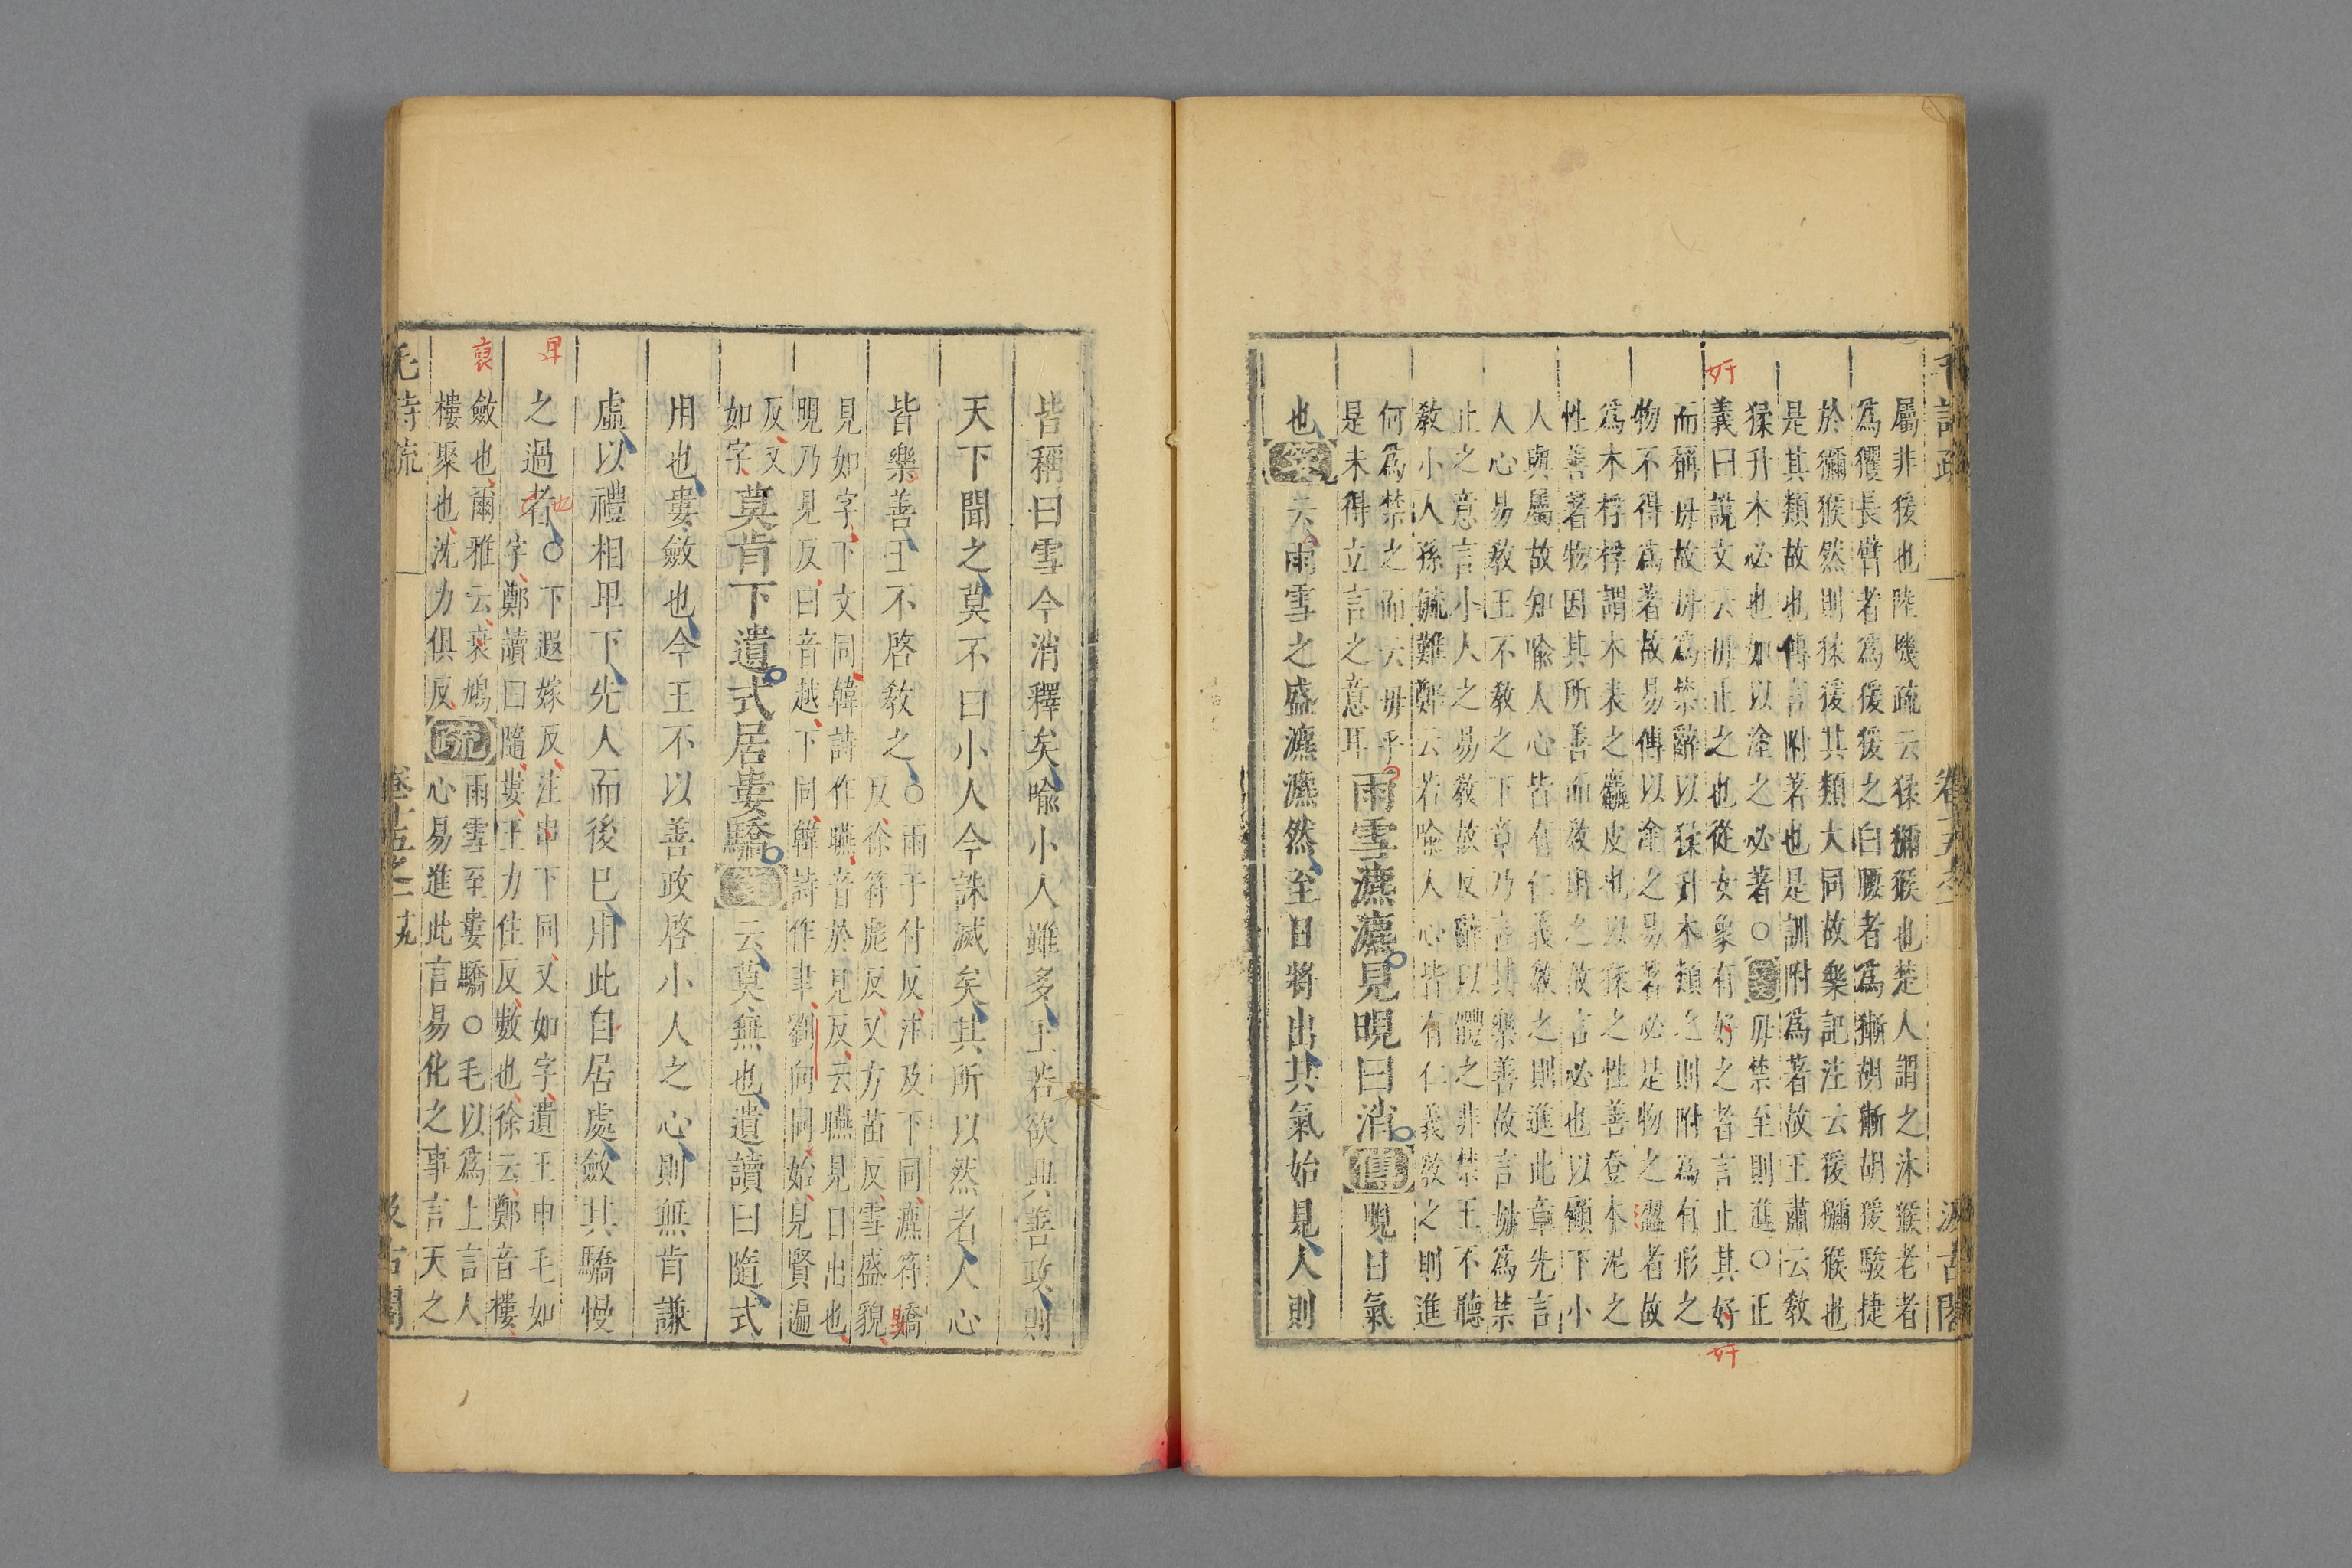 屬非猨也陸璣疏云猱獼猴也楚人謂之沐猴老者
爲玃長臂者爲猨猨之白腰者爲獑胡獑胡猨駿捷
於獼猴然則猱猨其類大同故樂記注云猨獼猴也
是其類故也傳言附著也是訓附爲著故王肅云教
猱升木必也如以塗之必著○箋毋禁至則進○正
義曰說文云毋止之也從女象有好之者言止其好
而稱毋故毋爲禁辭以猱升木類之則附爲有形之
物不得爲著故易傳以塗之易著必是物之澀者故
爲木桴桴謂木表之麤皮也以猱之性善登木泥之
性善著物因其所善而教用之故言必也以顧下小
人與屬故知喻人心皆有仁義教之則進此章先言
人心易教王不教之下章乃言其樂善故言毋爲禁
止之意言小人之易教故反辭以體之非禁王不聽
教小人孫毓難鄭云若喻人心皆有仁義教之則進
何爲禁之而云毋乎
是未得立言之意耳
雨雪瀌瀌見晛曰消傳晛日氣
也箋云雨雪之盛瀌瀌然至日將出其氣始見人則
皆稱曰雪今消釋矣喻小人雖多王若欲興善政則
天下聞之莫不曰小人今誅滅矣其所以然者人心
皆樂善王不啓教之○雨于付反注及下同瀌符驕
反徐符彪反又方苗反雪盛貌
見如字下文同韓詩作曣音於見反云曣見日出也
晛乃見反曰音越下同韓詩作聿劉向同始見賢遍
反又
如字
莫肯下遺式居婁驕箋云莫無也遺讀曰隨式
用也婁斂也今王不以善政啓小人之心則無肯謙
虛以禮相卑下先人而後已用此自居處斂其驕慢
之過者○下遐嫁反注申下同又如字遺王申毛如
字鄭讀曰隨婁王力住反數也徐云鄭音樓
斂也爾雅云裒鳩
樓聚也沈力俱反
疏雨雪至婁驕○毛以爲上言人
心易進此言易化之事言天之
毛詩疏
卷十五之一
十九
汲古閣